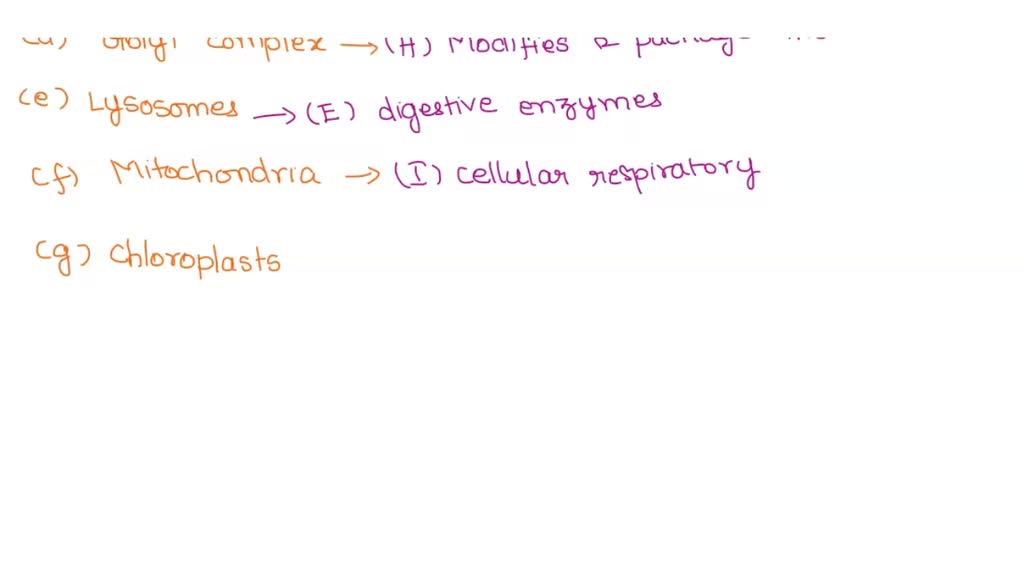 Golgi complex → (H) Modifies &
(e) Lysosomes → (E) digestive enzymes
(f) Mitochondria → (I) cellular respiratory
(g) chloroplasts